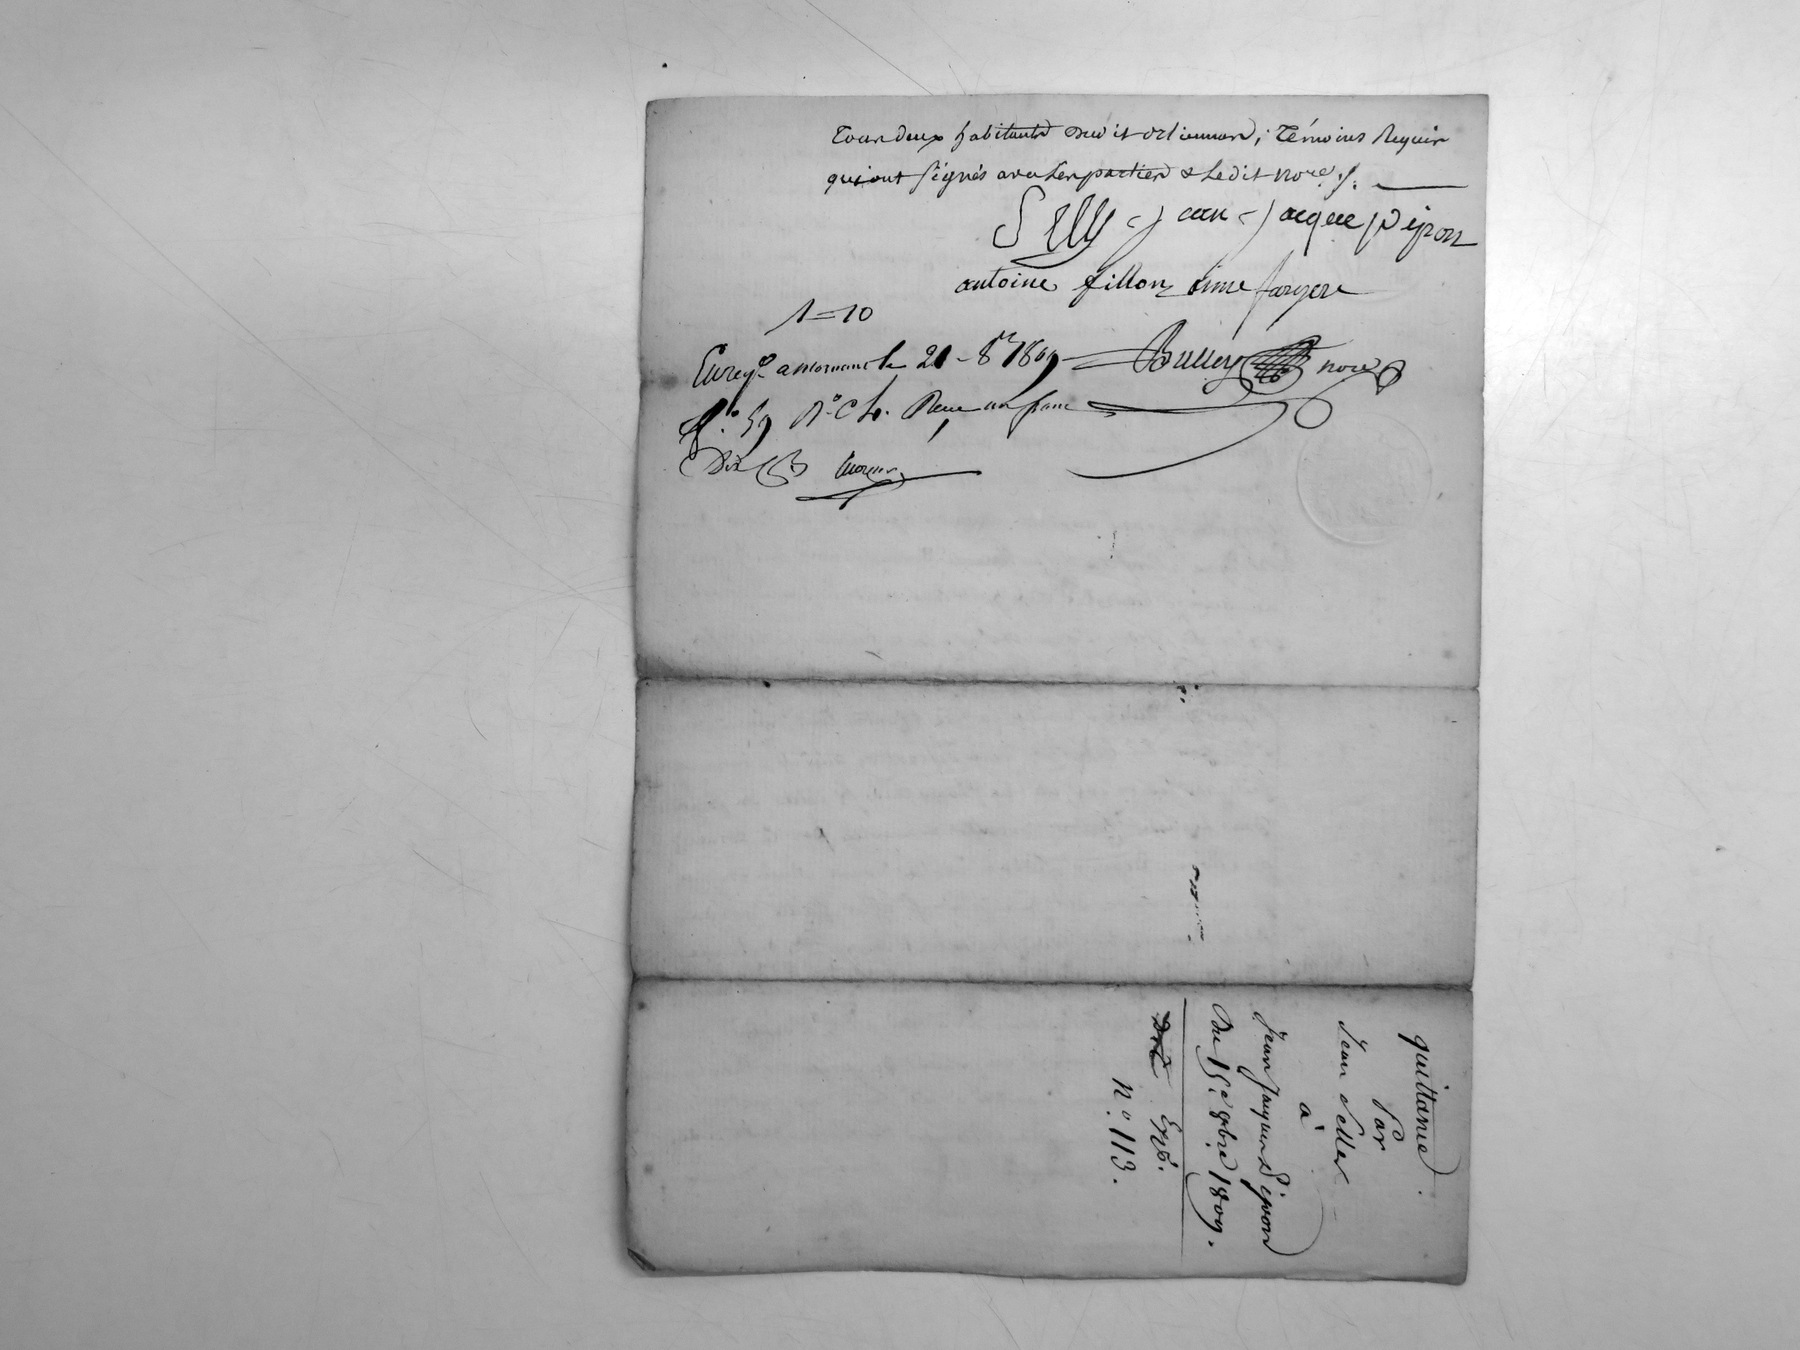 Tous deux habitants dudit orlienas, Témoins Requis
qui ont signés avec les parties & ledit nore ./.
Selly Jean Jacque Pipon
antoine fillon aime fargere
1=10
Enregé a mornant le 21 8re 1809 nore
fo. 59 Ro. C 4. Reçu un franc
Dix
quittance.
Par
Jean Seller
à
Jean Jacques Pipon
Du 15e 8bre 1809.
Expé.
no. 113.